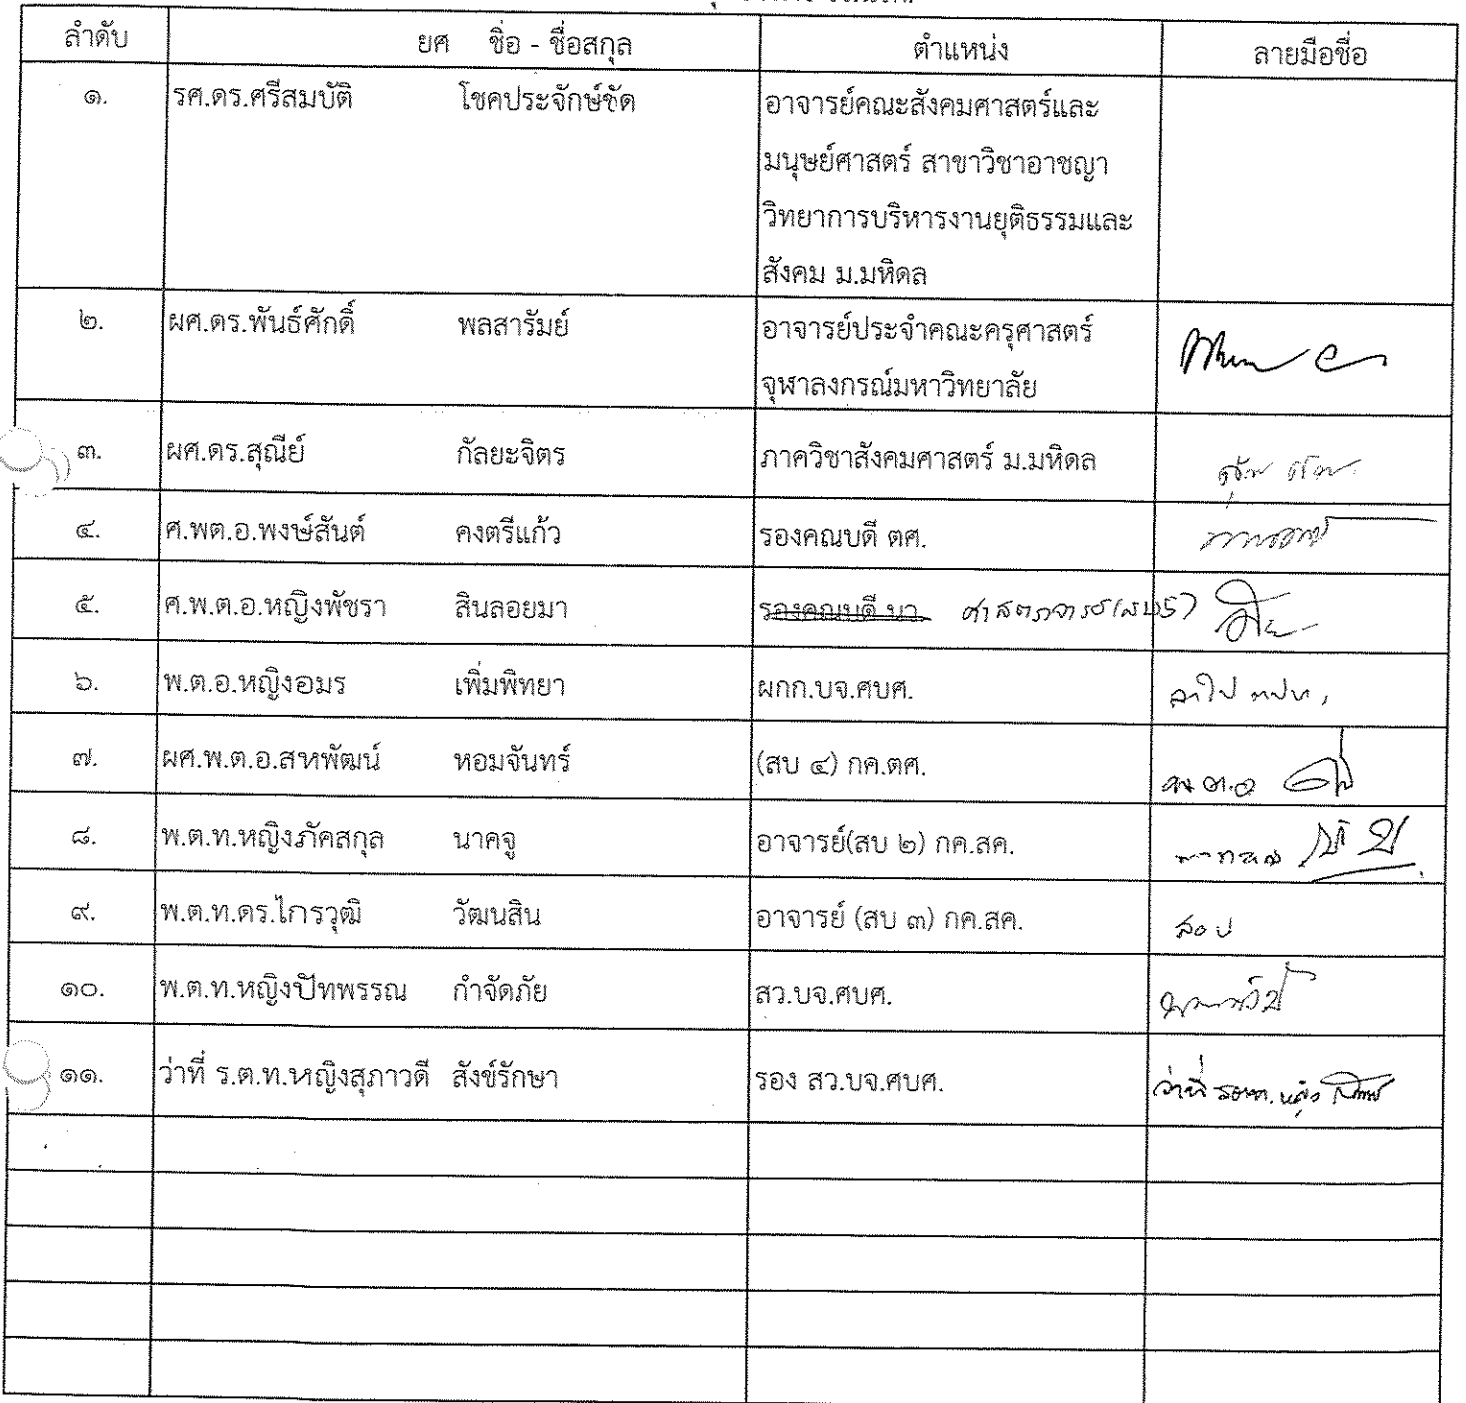 ลำดับ ยศ ชื่อ - ชื่อสกุล ตำแหน่ง ลายมือชื่อ
๑. รศ.ดร.ศรีสมบัติ โชคประจักษ์ชัด อาจารย์คณะสังคมศาสตร์และ
มนุษย์ศาสตร์ สาขาวิชาอาชญา
วิทยาการบริหารงานยุติธรรมและ
สังคม ม.มหิดล
๒. ผศ.ดร.พันธ์ศักดิ์ พลสารัมย์ อาจารย์ประจำคณะครุศาสตร์
จุฬาลงกรณ์มหาวิทยาลัย
๓. ผศ.ดร.สุณีย์ กัลยะจิตร ภาควิชาสังคมศาสตร์ ม.มหิดล
๔. ศ.พต.อ.พงษ์สันต์ คงตรีแก้ว รองคณบดี ตศ.
๕. ศ.พ.ต.อ.หญิงพัชรา สินลอยมา รองคณบดี บว. ศาสตราจารย์(สบ5)
๖. พ.ต.อ.หญิงอมร เพิ่มพิทยา ผกก.บจ.ศบศ.
๗. ผศ.พ.ต.อ.สหพัฒน์ หอมจันทร์ (สบ ๔) กค.ตศ. พ.ต.อ
๘. พ.ต.ท.หญิงภัคสกุล นาคจู อาจารย์(สบ ๒) กค.สค.
๙. พ.ต.ท.ดร.ไกรวุฒิ วัฒนสิน อาจารย์ (สบ ๓) กค.สค.
๑๐. พ.ต.ท.หญิงปัทพรรณ กำจัดภัย สว.บจ.ศบศ.
๑๑. ว่าที่ ร.ต.ท.หญิงสุภาวดี สังข์รักษา รอง สว.บจ.ศบศ. ว่าที่